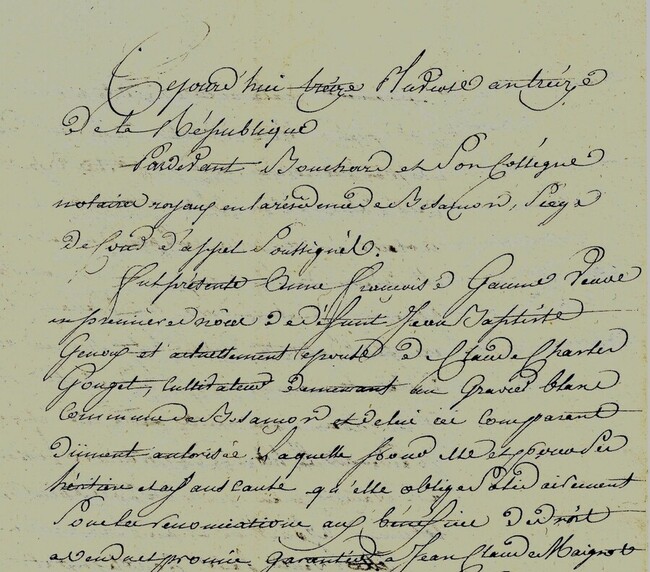 Cejourd'hui treize Nivose an treize
de la République
Pardevant Bouchard et son Collégue
notaires royaux en la résidence de Besançon, siége
de Cour d'appel soussignés.
fut présente Anne françoise Gaume veuve
en premieres nôces de défunt Jean Baptiste
et actuellement epouse de Claude Charles
Gouget, cultivateur demeurant au Gravier blanc
Commune de Besançon et de lui ici comparant
dûment autorisée Laquelle pour elle et pour ses
héritiers et ayans cause qu'elle oblige solidairement
sous les renonciations aux bénéfices de droit
a vendu et promis garantir à Jean Claude Maignot